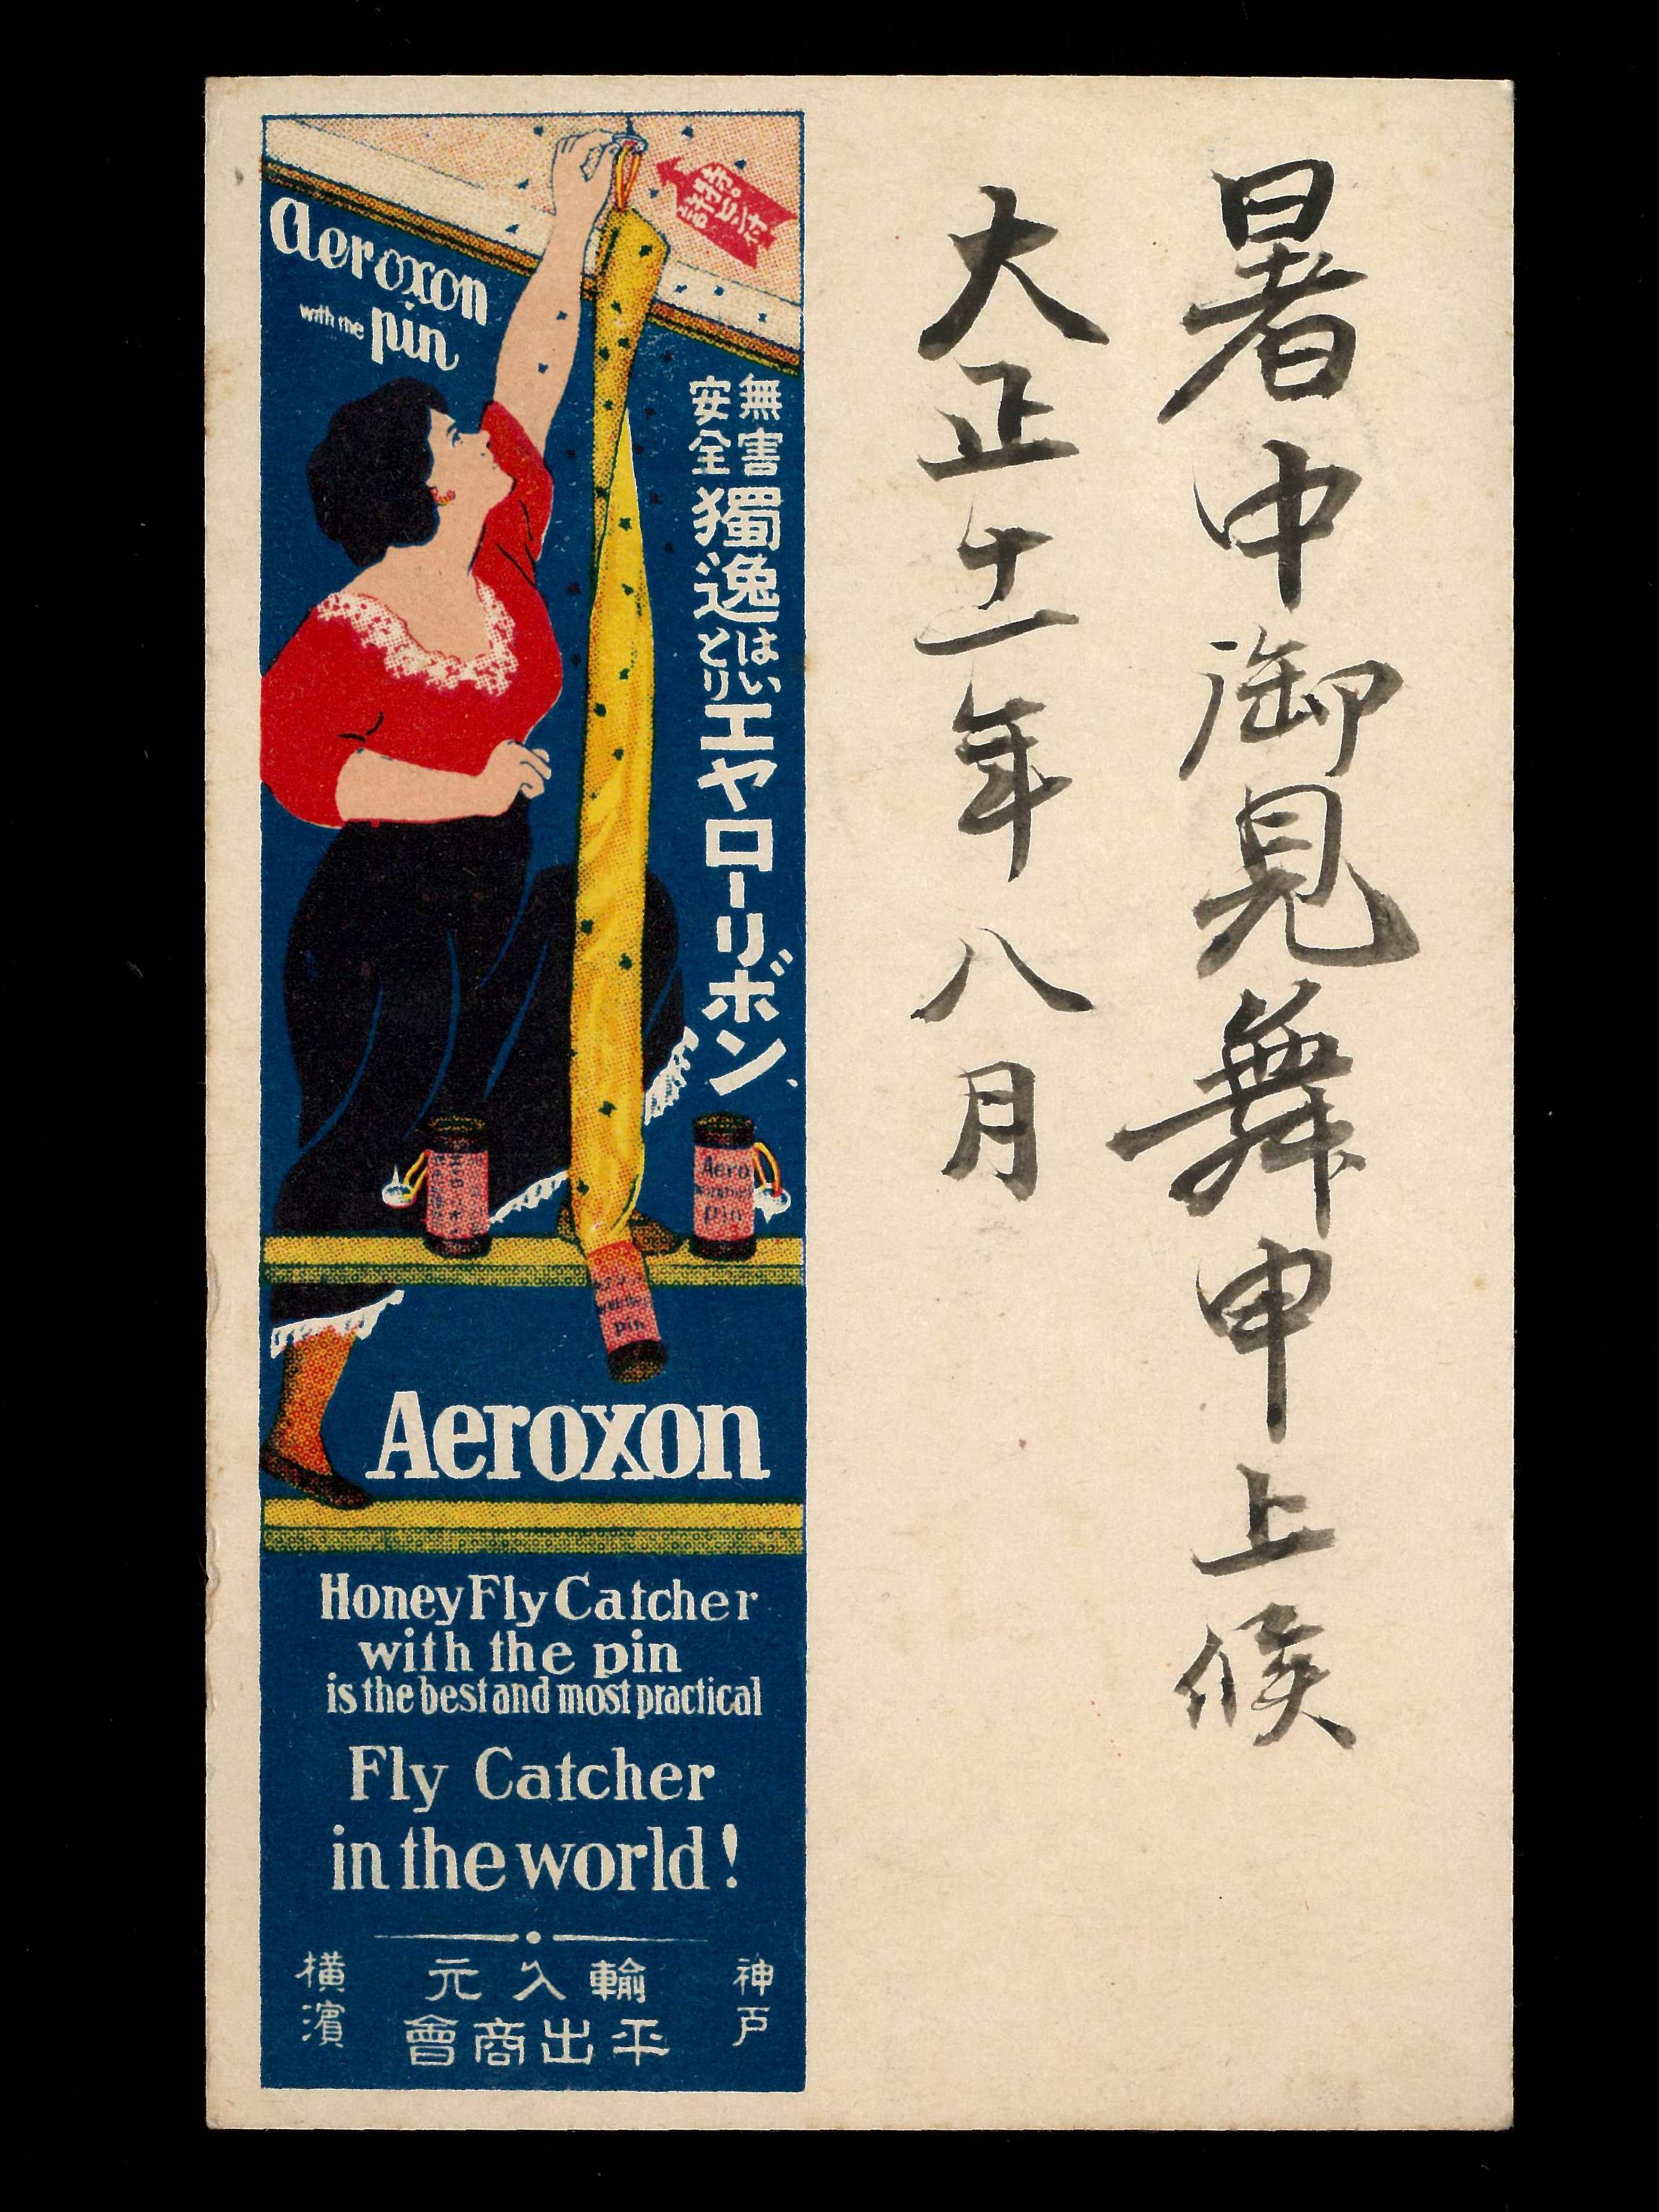 暑中御見舞申上候
大正十一年八月
Aeroxon
with the pin
特許ピン付
無害安全獨逸はいとりエヤローリボン
Aero
pin
pin
Aeroxon
Honey Fly Catcher
with the pin
is the best and most practical
Fly Catcher
in the world!
神戸
輸入元
平出商會
横濱